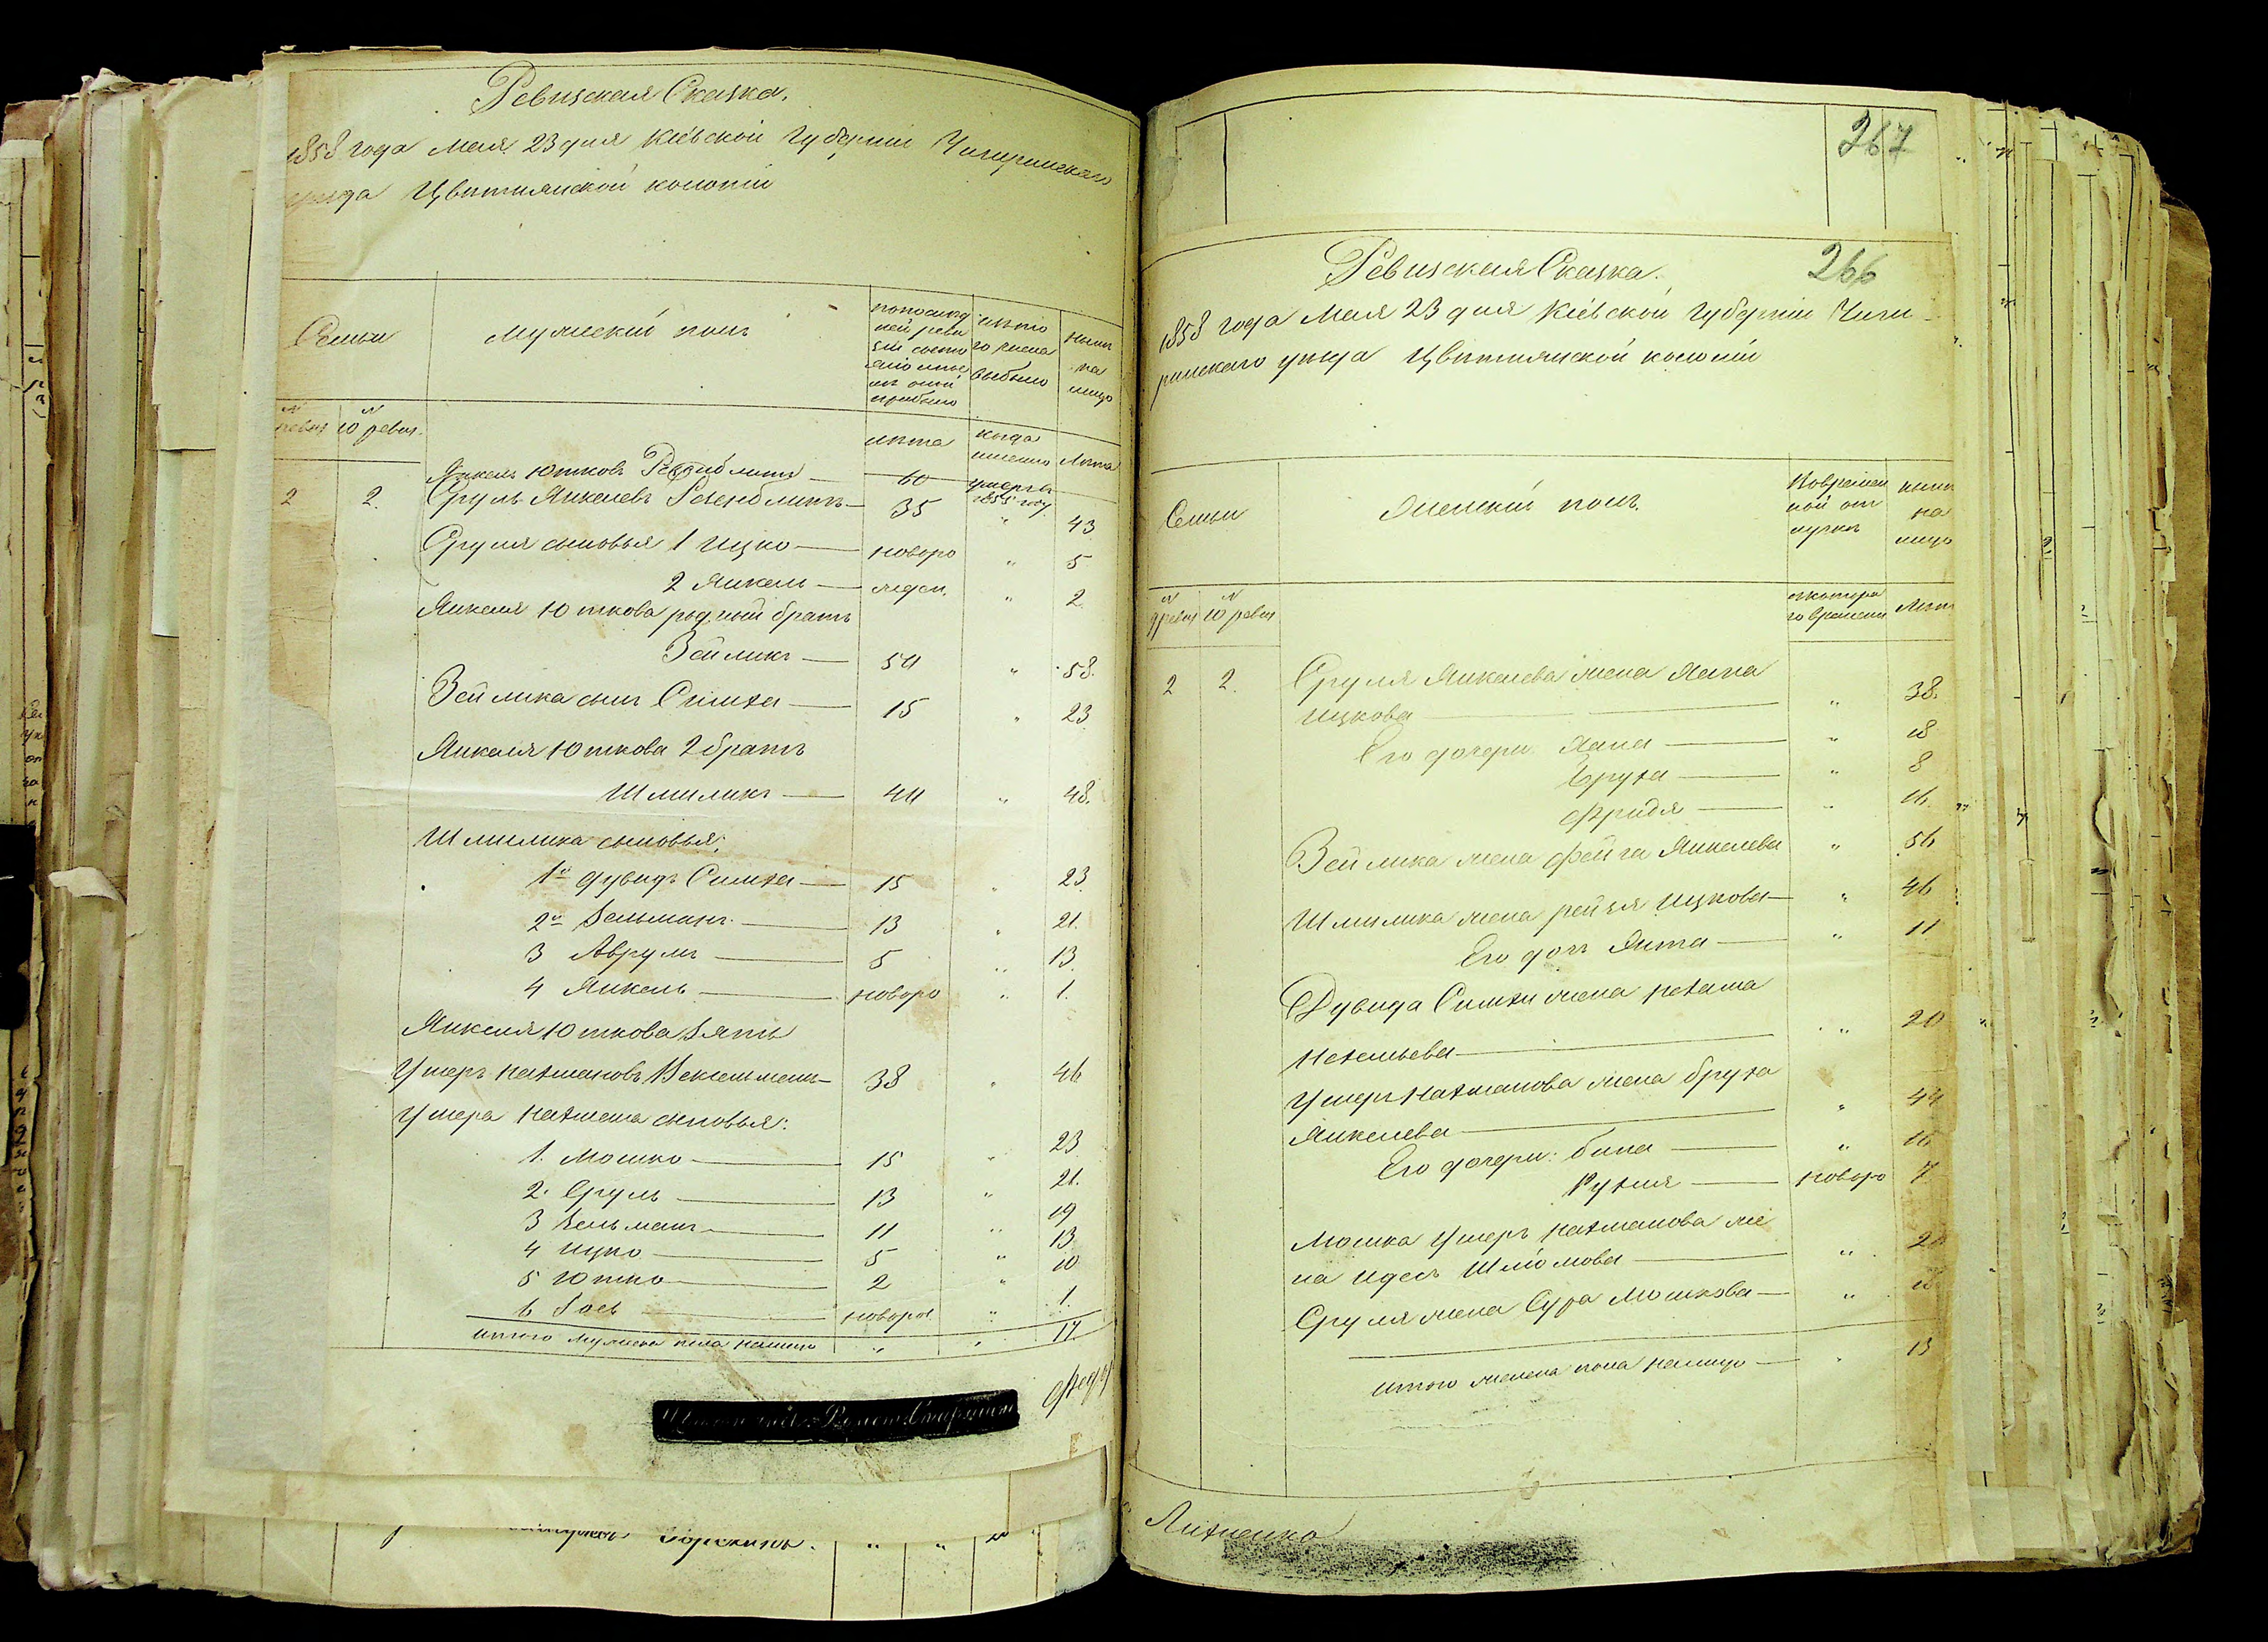 Ревизская Сказка.
1858 года Мая 23 дня Кіевской Губерніи Чигиринскаго
уѣзда Цвѣтнянской колоніи
Семьи
Мужескій полъ
по послѣд
ней реви
зіи состо
яло или по
слѣ оной
прибыло
изъ то
го числа
выбыло
нынѣ
на
лицо
№
ревиз
№
10 ревиз.
лѣта
когда
именно
Лѣта
Янкель Ютковъ 60 умеръ
1855 году
2 2. Сруль Янкелевъ 35 " 43
Сруля сыновья 1 Ицко новоро " 5
2 Янкель жден. " 2
Янкеля Юткова родный братъ
Зейликъ 50 " 58.
Зейлика сынъ Симха 15 " 23
Янкеля Юткова 2 братъ
Шмиликъ 40 " 48.
Шмилика сыновья:
1й Дувидъ Симха 15 " 23
2й Зельманъ 13 " 21.
3 Аврумъ 5 " 13.
4 Янкель новоро " 1.
Янкеля Юткова зять
Ушеръ Нахмановъ 38 " 46
Ушера Нахмана сыновья:
1. Мошко 15 " 23
2. Сруль 13 " 21.
3 Зельманъ 11 " 19
4 Ицко 5 " 13
5 Ютко 2 " 10
6 новорож. " 1.
Итого мужеска пола налицо " " 17.
267
Ревизская Сказка.
266
1858 года Мая 23 дня Кіевской Губерніи Чиги-
ринскаго уѣзда Цвѣтнянской колоніи
Семьи
Женскій полъ.
Во времен
ной от
лучкѣ
нынѣ
на
лицо
№
9 ревиз
№
10 ревиз
съ котора
го времени
Лѣта
2 2. Сруля Янкелева жена Хана
Ицкова " 38.
Его дочери Хана " 18
Бруха " 8
Фрида " 16.
Зейлика жена Фейга Янкелева " 56
Шмилика жена Рейзя Ицкова " 46
Его дочь Янта " 11
Дувида Симхи жена Нехама
" 20
Ушера Нахманова жена Бруха
Янкелева " 44
Его дочери: Бина " 16
Рухля новоро 7
Мошка Ушеръ Нахманова же
на Идесъ Шліомова "
Сруля жена Сура Мошкова "
Итого женска пола налицо " 13